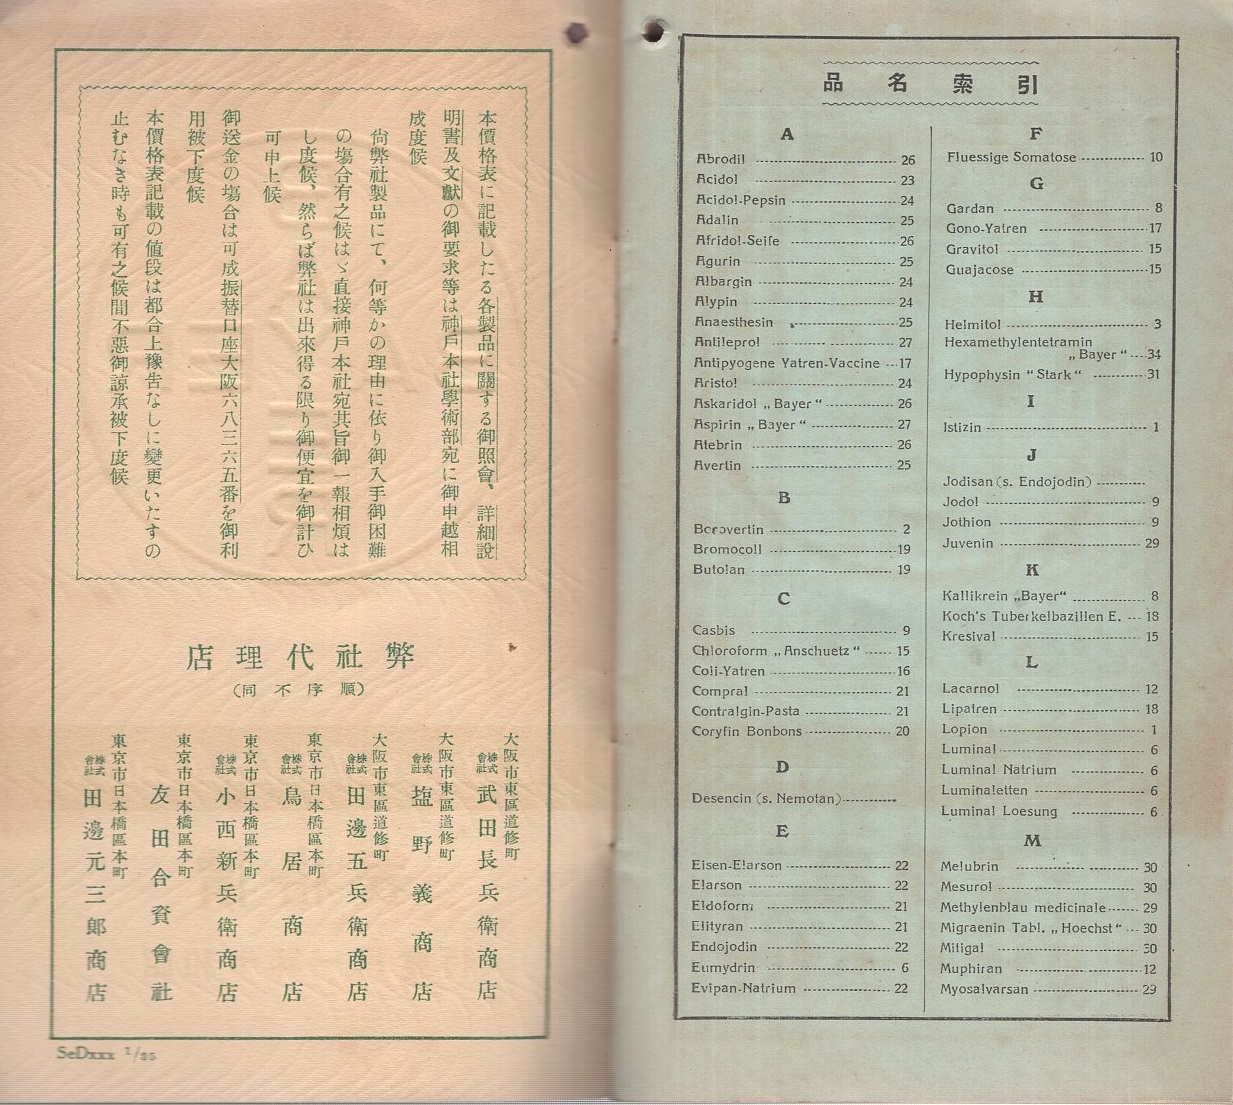 本價格表に記載したる各製品に關する御照會、詳細說
明書及文獻の御要求等は神戶本社學術部宛に御申越相
成度候
尙弊社製品にて、何等かの理由に依り御入手御困難
の塲合有之候はゞ直接神戶本社宛其旨御一報相煩は
し度候、然らば弊社は出來得る限り御便宜を御計ひ
可申上候
御送金の塲合は可成振替口座大阪六八三六五番を御利
用被下度候
本價格表記載の値段は都合上豫吿なしに變更いたすの
止むなき時も可有之候間不惡御諒承被下度候
弊社代理店
(順序不同)
大阪市東區道修町
株式會社 武田長兵衞商店
大阪市東區道修町
株式會社 塩野義商店
大阪市東區道修町
株式會社 田邊五兵衞商店
東京市日本橋區本町
株式會社 鳥居商店
東京市日本橋區本町
株式會社 小西新兵衞商店
東京市日本橋區本町
友田合資會社
東京市日本橋區本町
株式會社 田邊元三郞商店
SeDxxx 1/35
品名索引
A
Abrodil 26
Acidol 23
Acidol-Pepsin 24
Adalin 25
Afridol-Seife 26
Agurin 25
Albargin 24
Alypin 24
Anaesthesin 25
Antileprol 27
Antipyogene Yatren-Vaccine 17
Aristol 24
Askaridol „Bayer“ 26
Aspirin „Bayer“ 27
Atebrin 26
Avertin 25
B
Borovertin 2
Bromocoll 19
Butolan 19
C
Casbis 9
Chloroform „Anschuetz“ 15
Coli-Yatren 16
Compral 21
Contralgin-Pasta 21
Coryfin Bonbons 20
D
Desencin (s. Nemotan)
E
Eisen-Elarson 22
Elarson 22
Eldoform 21
Elityran 21
Endojodin 22
Eumydrin 6
Evipan-Natrium 22
F
Fluessige Somatose 10
G
Gardan 8
Gono-Yatren 17
Gravitol 15
Guajacose 15
H
Helmitol 3
Hexamethylentetramin
„Bayer“ 34
Hypophysin “Stark“ 31
I
Istizin 1
J
Jodisan (s. Endojodin)
Jodol 9
Jothion 9
Juvenin 29
K
Kallikrein „Bayer“ 8
Koch's Tuberkelbazillen E. 18
Kresival 15
L
Lacarnol 12
Lipatren 18
Lopion 1
Luminal 6
Luminal Natrium 6
Luminaletten 6
Luminal Loesung 6
M
Melubrin 30
Mesurol 30
Methylenblau medicinale 29
Migraenin Tabl. „Hoechst“ 30
Mitigal 30
Muphiran 12
Myosalvarsan 29